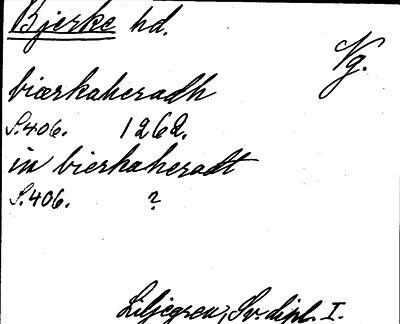 Bjerke hd.
Vg.
biærkaheradh
S. 406. 1262.
in bierkaheradt
S. 406. ?
Liljegren, Sv. dipl. I.